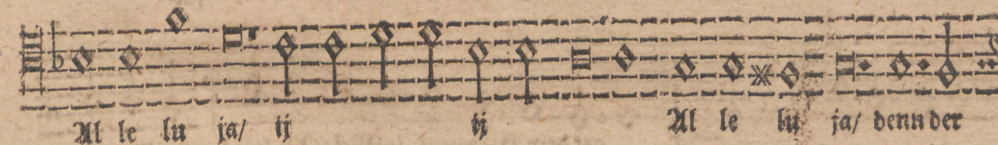 Al le lu ja/ ij ij Al le lu ja/ denn der